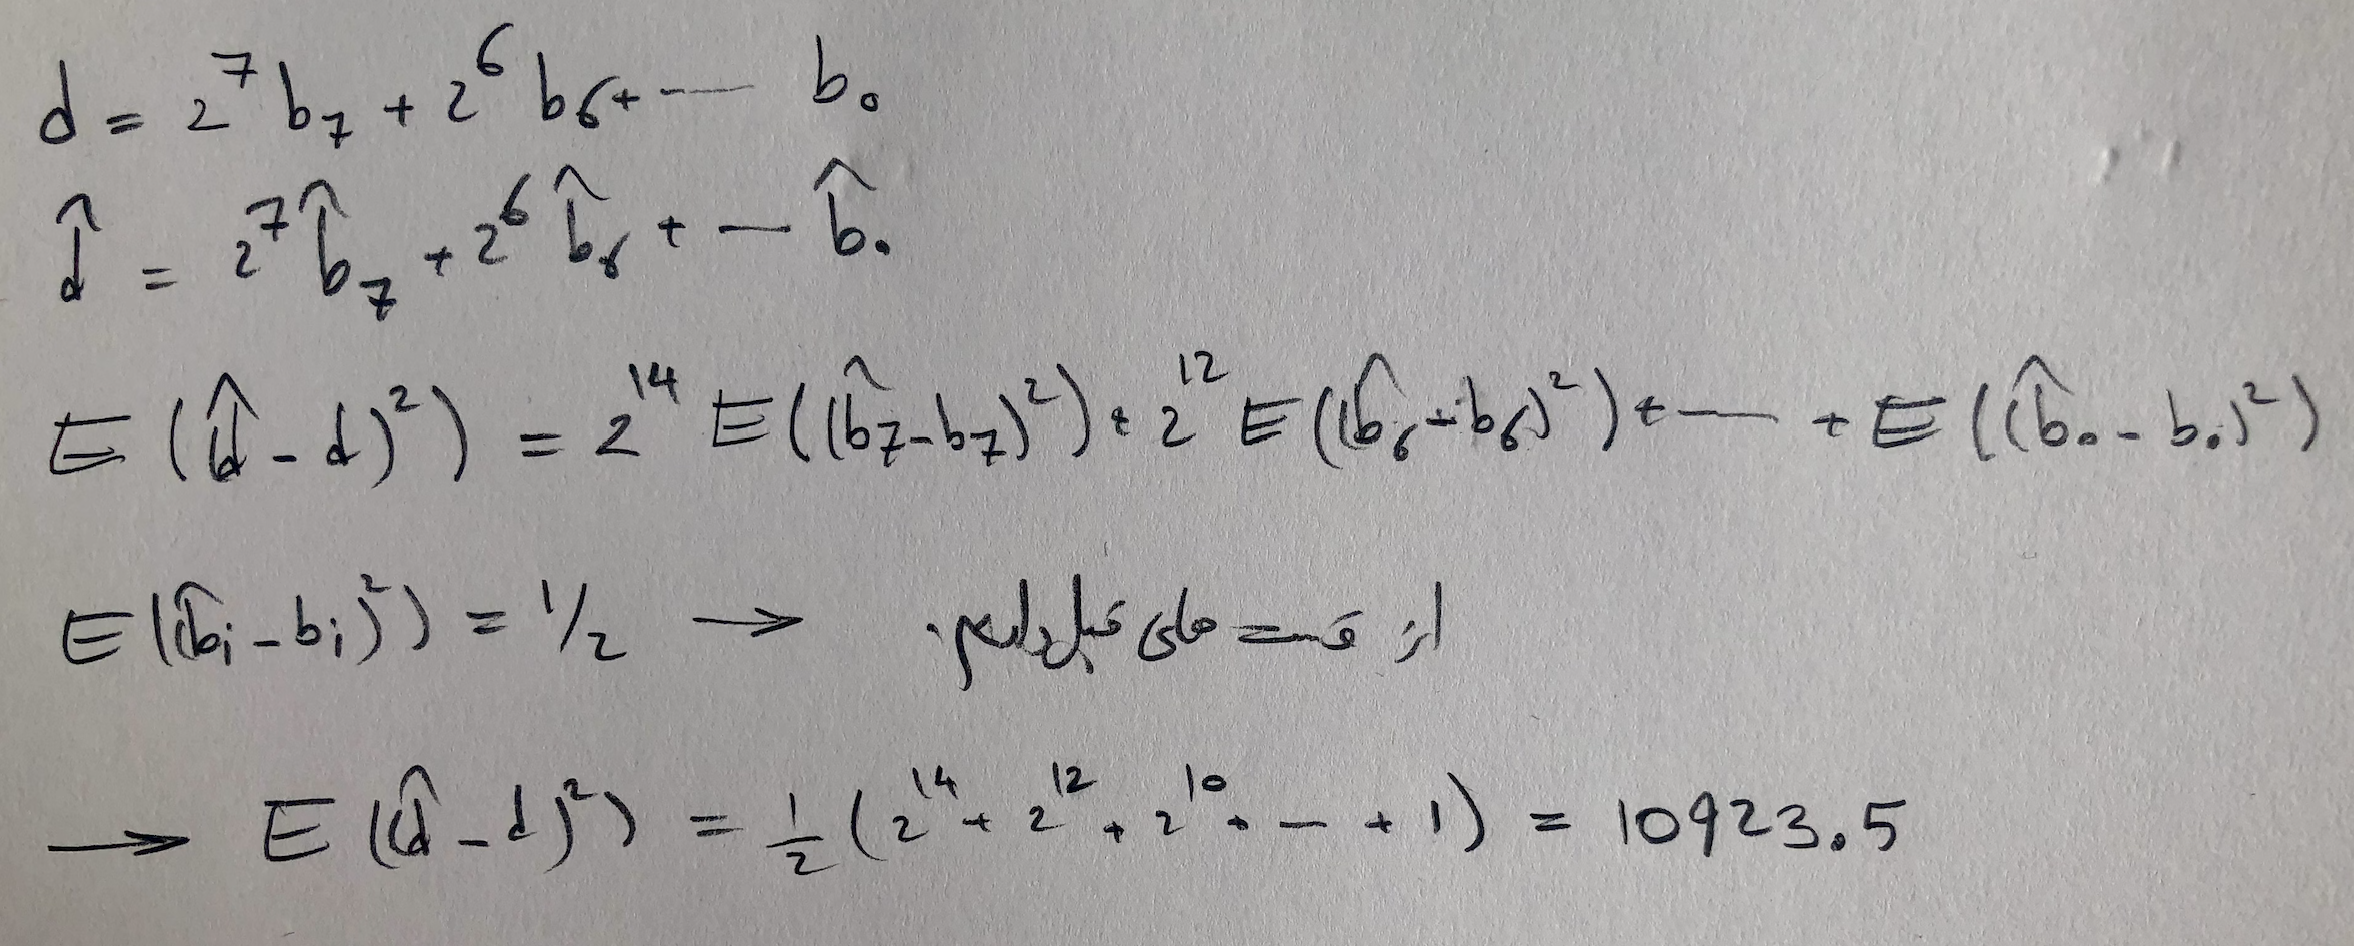 d = 2^7 b_7 + 2^6 b_6 + --- b_0
d̂ = 2^7 b̂_7 + 2^6 b̂_6 + — b̂_0
E(d̂ - d)^2) = 2^14 E((b̂_7 - b_7)^2) + 2^12 E((b̂_6 - b_6)^2) + --- + E((b̂_0 - b_0)^2)
E((b̂_i - b_i)^2) = 1/2 → از قسمت های قبل داریم.
→ E((d̂ - d)^2) = 1/2 (2^14 + 2^12 + 2^10 + -- + 1) = 10923.5